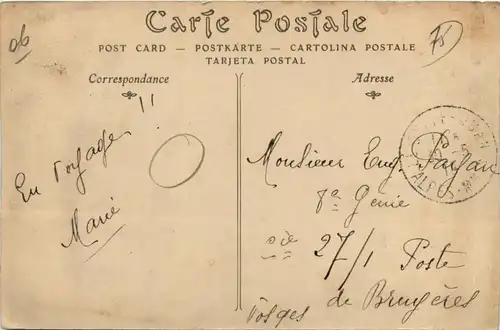 06
75
Carte Postale
POST CARD — POSTKARTE — CARTOLINA POSTALE
TARJETA POSTAL
Correspondance
Adresse
En voyage !!
Marie
Monsieur Eug. Payan
8e Genie
Cie 27/1 Poste
de Bruyéres
Vosges
ALPES-M